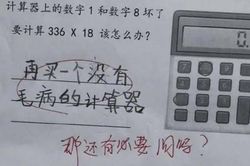 计算器上的数字1和数字8坏了
要计算336×18该怎么办?
0.
再买一个没有
毛病的计算器
那还有必要问吗?